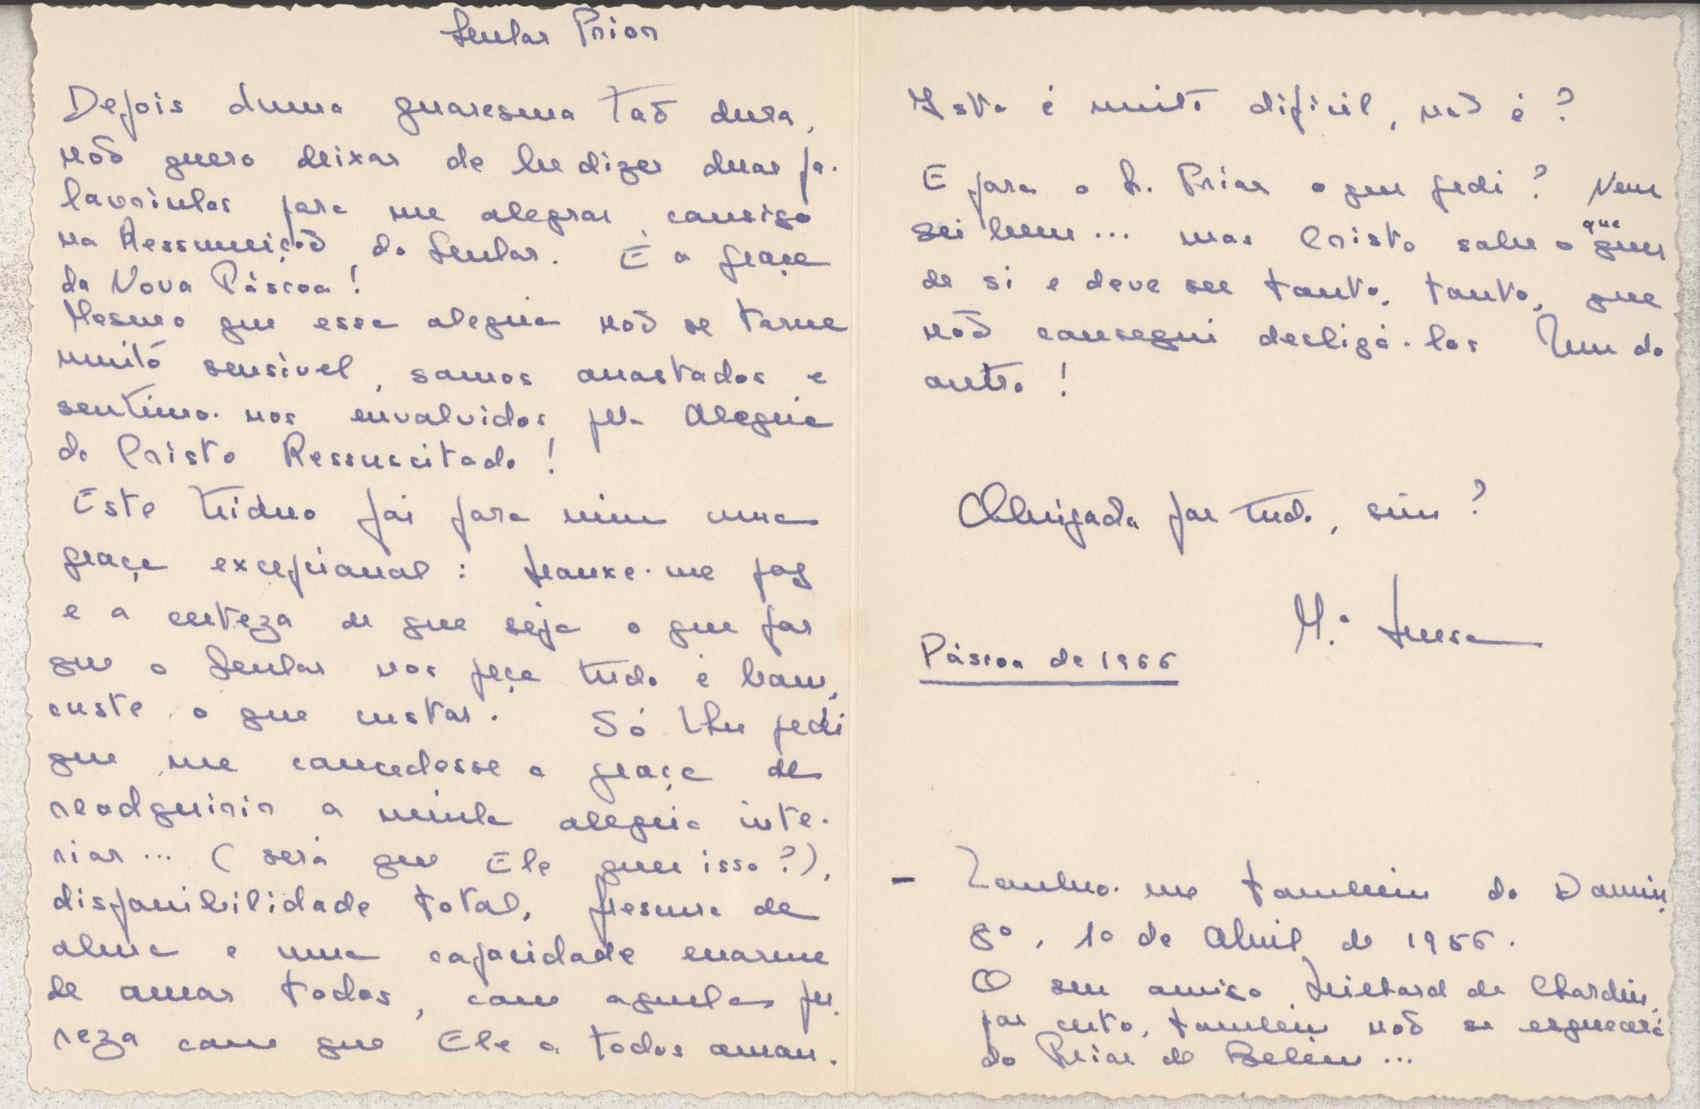 Senhor Prior
Depois duma quaresma tão dura,
não quero deixar de lhe dizer duas pa-
lavrinhas para me alegrar consigo
na Ressurreição do Senhor. É a graça
da Nova Páscoa!
Mesmo que essa alegria não se torne
muito sensível, somos arrastados e
sentimo-nos envolvidos pela Alegria
do Cristo Ressuscitado!
Este tríduo foi para mim uma
graça excepcional: trouxe-me paz
e a certeza de que seja o que for
que o Senhor nos peça tudo é bom,
custe o que custar. Só Lhe pedi
que me concedesse a graça de
readquirir a minha alegria inte-
rior... (será que Ele quer isso?),
disponibilidade total, frescura de
alma e uma capacidade enorme
de amar todos, com aquela pu-
reza com que Ele a todos amou.
Isto é muito difícil, não é?
E para o Sr. Prior o que pedi? Nem
sei bem... mas Cristo sabe o que quer
de si e deve ser tanto, tanto, que
não consegui desligá-los um do
outro!
Obrigada por tudo, sim?
M.ª Teresa
Páscoa de 1966
- Lembro-me também do Domin-
go, 10 de Abril de 1955.
O seu amigo, Teilhard de Chardin,
por certo, também não se esquecerá
do Prior de Belém...